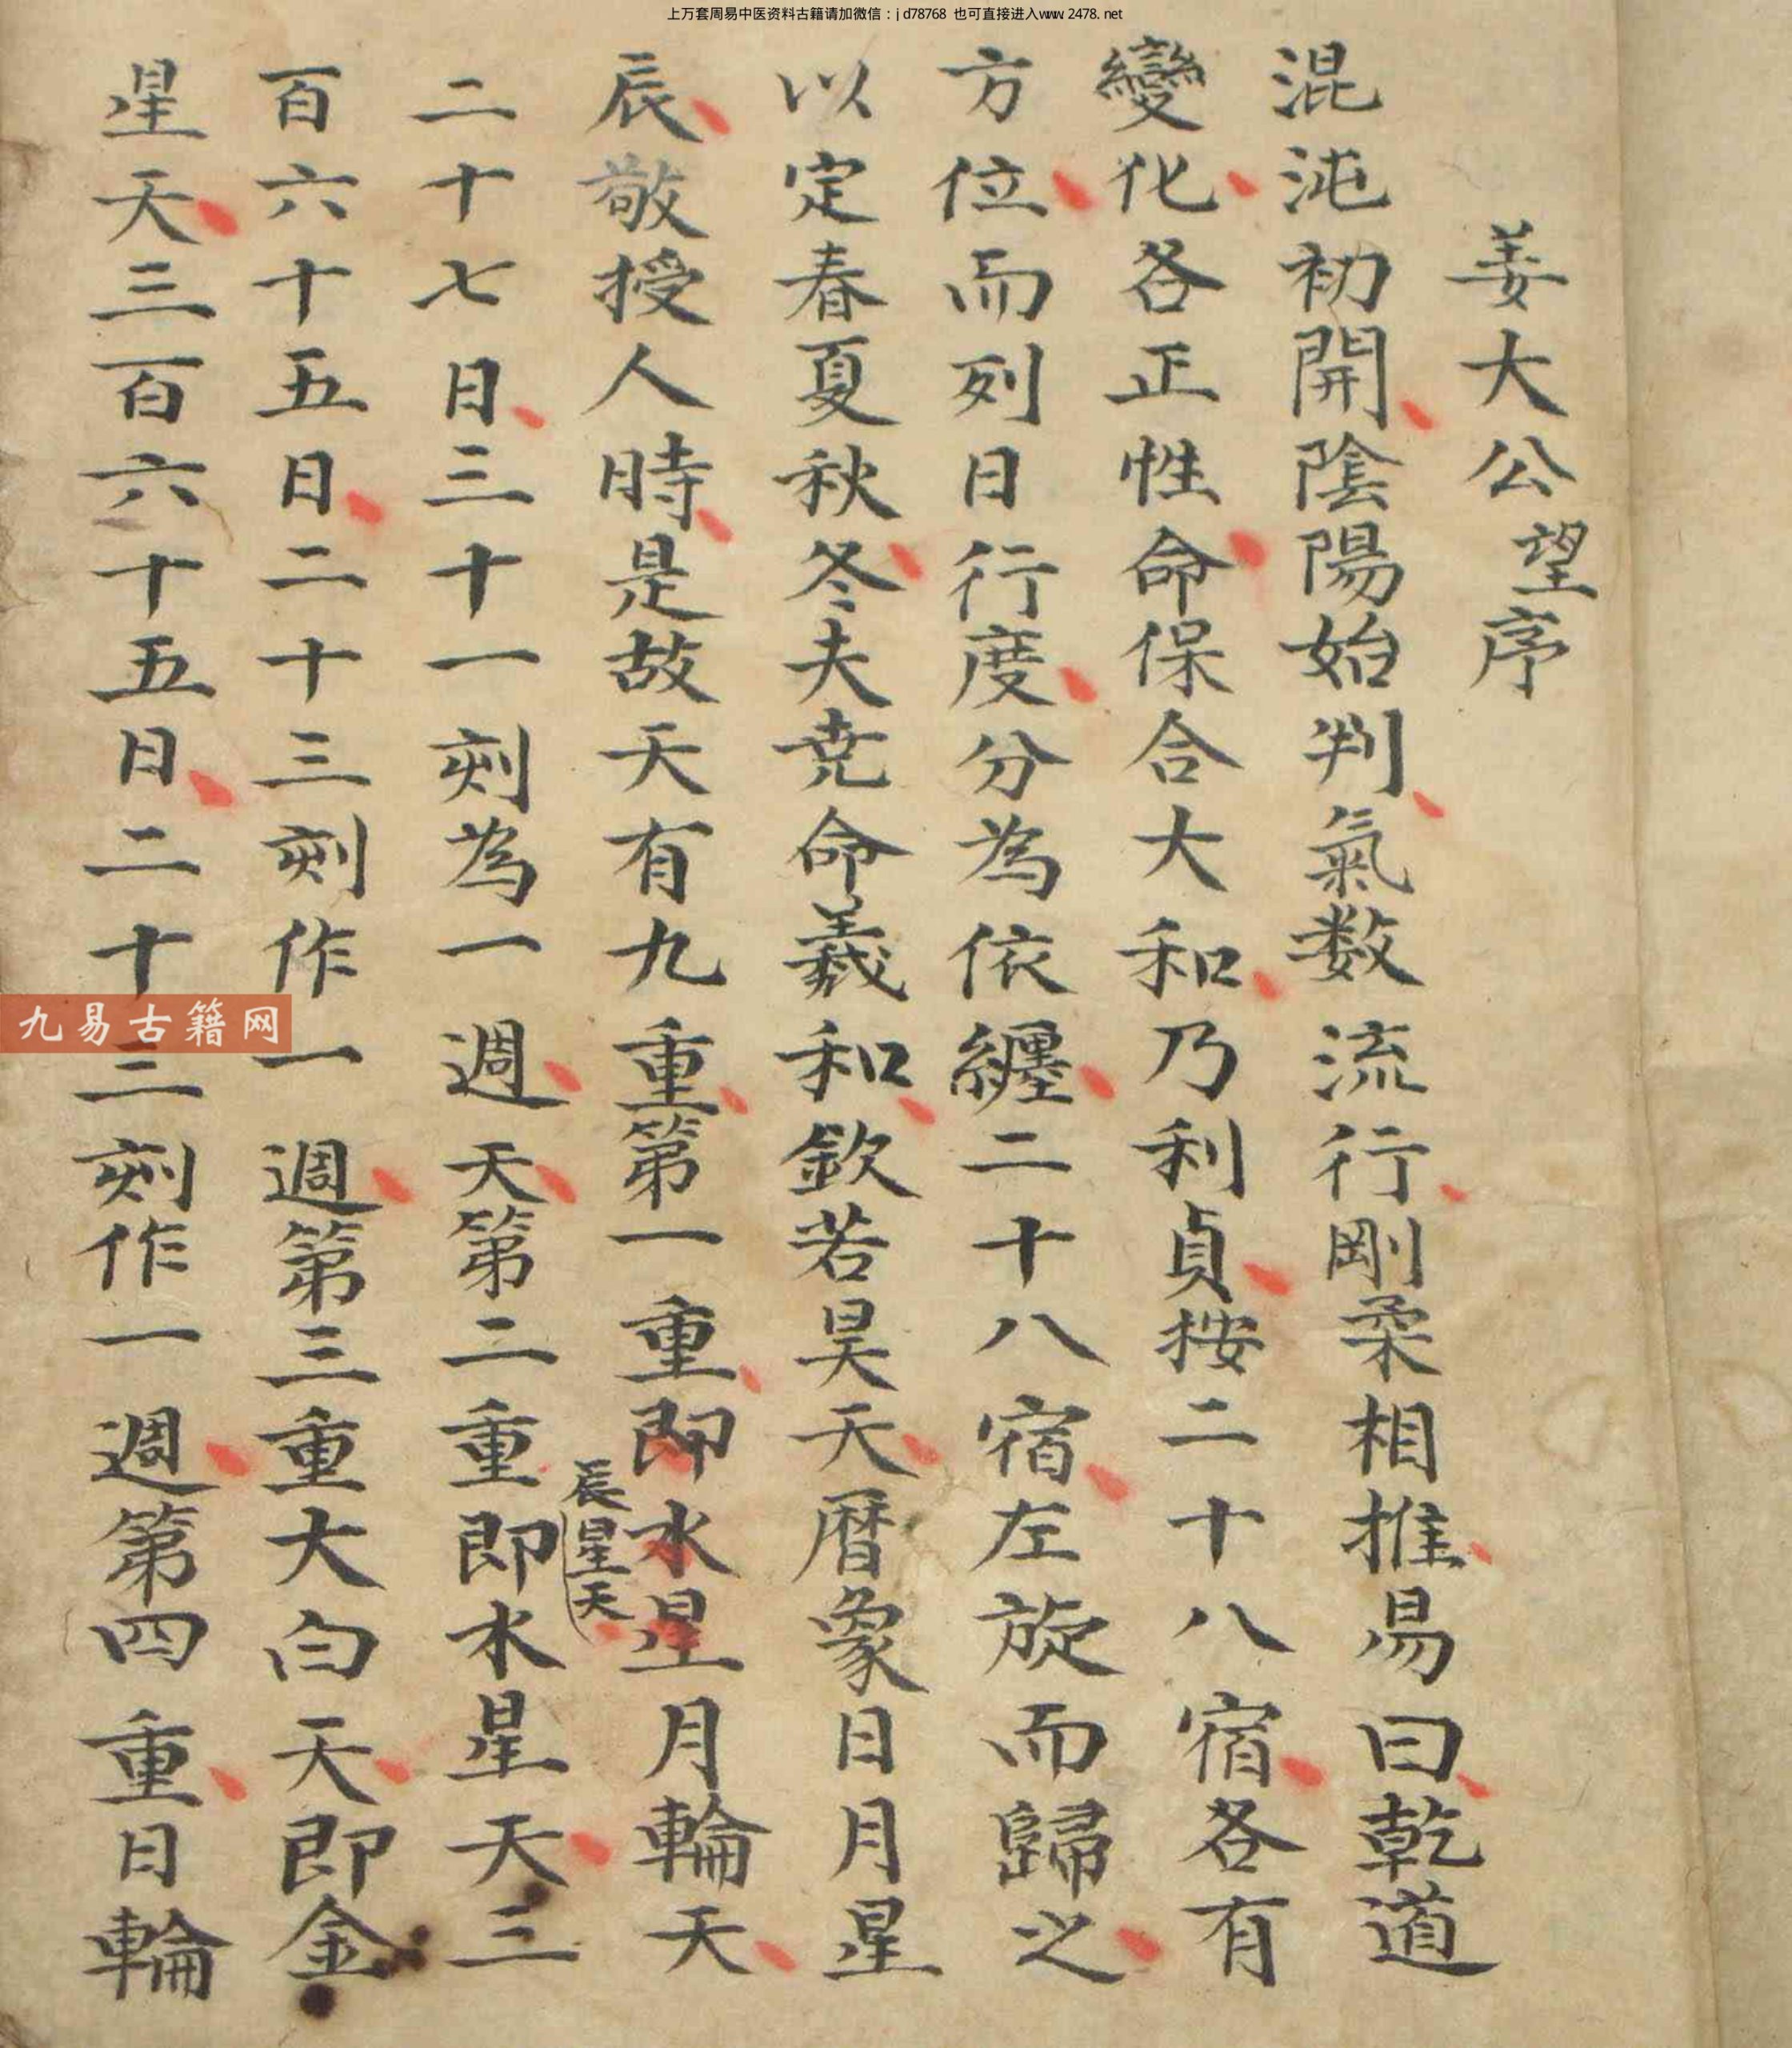 上万套周易中医资料古籍请加微信：jd78768 也可直接进入www.2478.net
姜大公望序
混沌初開陰陽始判氣数流行剛柔相推易曰乾道
變化各正性命保合大和乃利貞按二十八宿各有
方位而列日行度分為依纏二十八宿左旋而歸之
以定春夏秋冬夫尭命羲和欽若昊天暦象日月星
辰敬授人時是故天有九重第一重即水星月輪天
辰星天
二十七日三十一刻為一週天第二重即水星天三
百六十五日二十三刻作一週第三重大白天即金
星天三百六十五日二十三刻作一週第四重日輪
九易古籍网